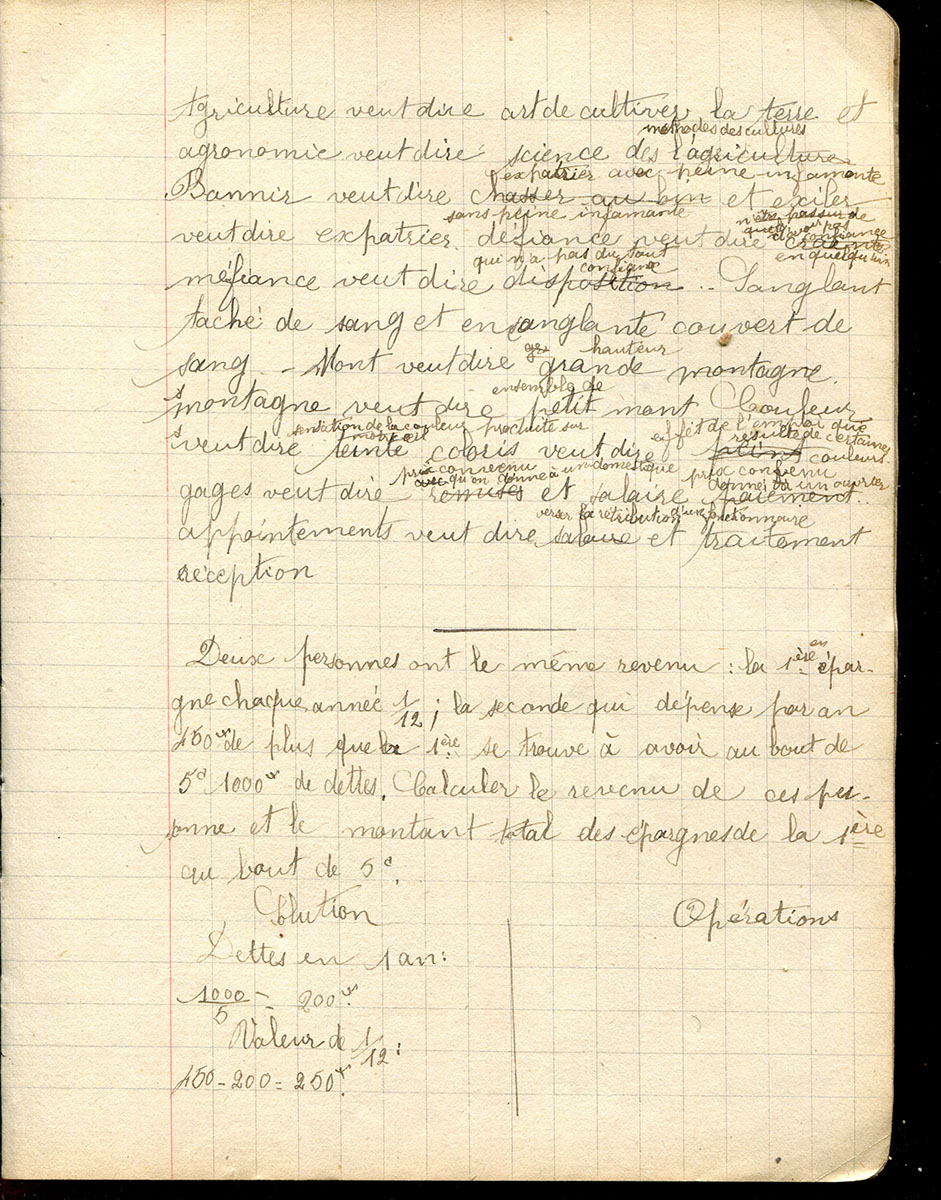 Agriculture veut dire art de cultiver la terre et
méthodes des cultures
agronomie veut dire science des l'agriculture
expatrier avec peine infamante
Bannir veut dire chasser au bin et exiler
sans peine infamante
n'être pas sur de
quelq
avoir pas
de confiance
en quelqu'un
veut dire expatrier. défiance veut dire crainte
qui n'a pas du tout
confiance
méfiance veut dire disposition .. Sanglant
taché de sang et ensanglanté couvert de
gr hauteur
sang .. Mont veut dire grande montagne.
ensemble de
montagne veut dire petit mont Couleur
sensation de la couleur produite sur
notre œil
effet de l'emploi que
résulte de certaines
couleurs
veut dire teinte coloris veut dire
prix convenu
avec qu'on donne à un domestique
prix convenu
donner à un ouvrier
gages veut dire remises et salaire paiement..
verser la rétribution d'un fonctionnaire
appointements veut dire salaire et traitement
réception
Deux personnes ont le même revenu : la 1ère en épar-
gne chaque année 1/12 ; la seconde qui dépense par an
450 de plus que la 1ère se trouve à avoir au bout de
5a 1000 de dettes. Calculer le revenu de ces per-
sonne et le montant total des épargnes de la 1ère
au bout de 5a.
Solution Opérations
Dettes en 1 an :
1000/5 = 200
Valeur de 1/12 :
450 - 200 = 250